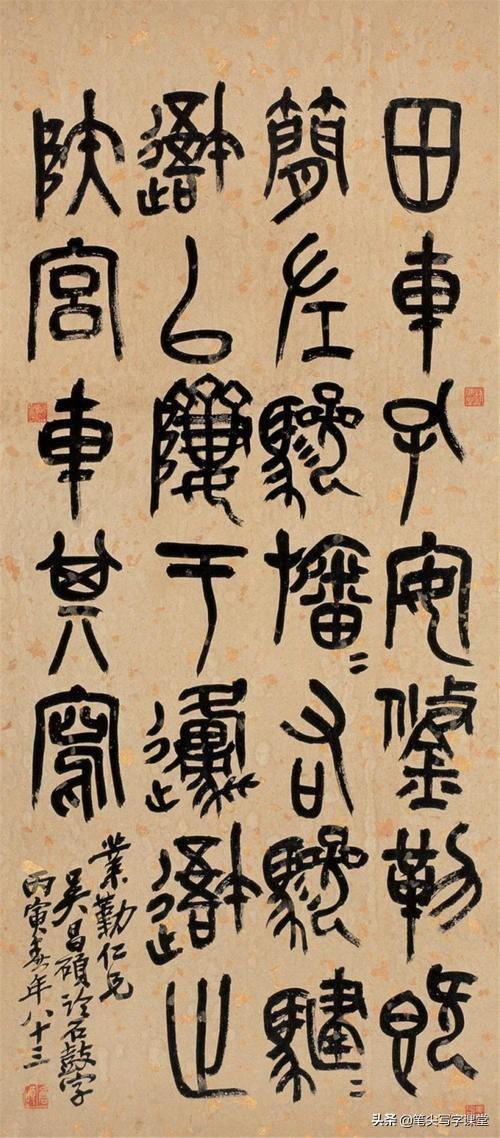 田車孔安鋚勒既
簡左驂旛=右驂騝=
吾以隮于邍吾止
陕宮車其寫
業勤仁兄
吳昌碩臨石鼓字
丙寅春年八十三
头条@笔尖写字课堂